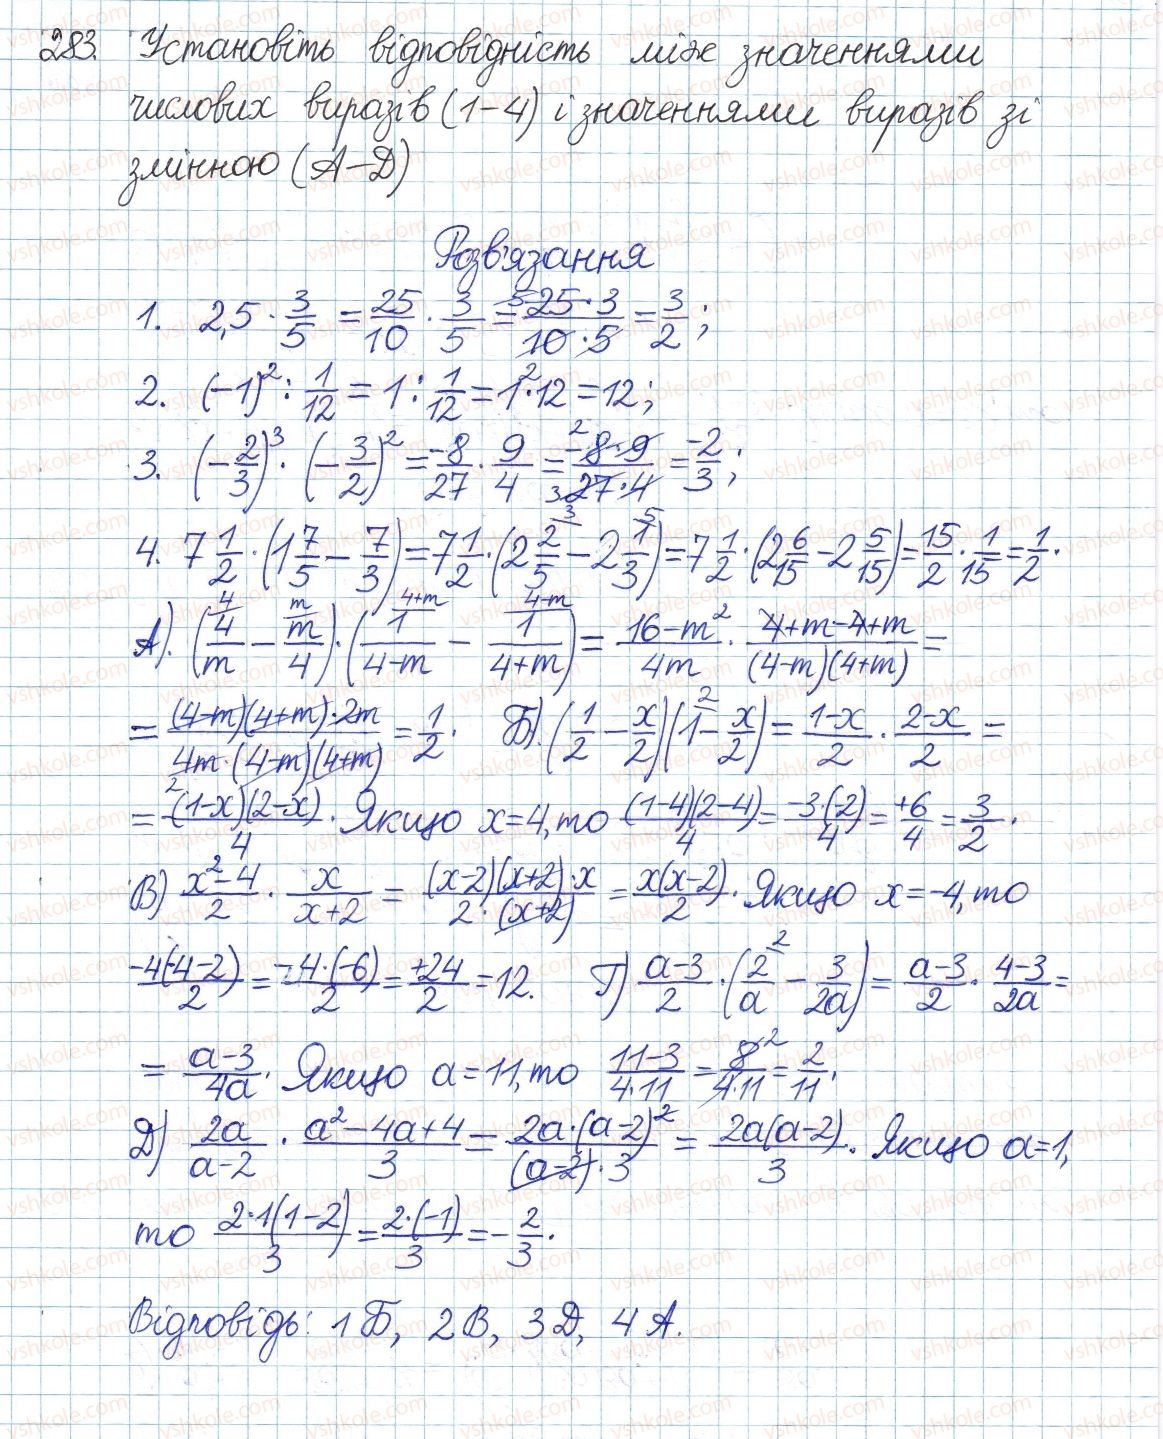 283. Установіть відповідність між значеннями
числових виразів (1–4) і значеннями виразів зі
змінною (А–Д)
Розв'язання
1. 2,5 · 3/5 = 25/10 · 3/5 = 5 25·3/10·5 = 3/2;
2. (-1)² : 1/12 = 1 : 1/12 = 1²·12 = 12;
3. (-2/3)³ · (-3/2)² = -8/27 · 9/4 = 2 -8·9/3 27·4 = -2/3;
4. 7 1/2 · (1 7/5 - 7/3) = 7 1/2 · (2 2/5 - 2 1/3) = 7 1/2 · (2 6/15 - 2 5/15) = 15/2 · 1/15 = 1/2.
А). (4/m - m/4) · (1/4-m - 1/4+m) = 16-m²/4m · 4+m-4+m/(4-m)(4+m) =
= (4-m)(4+m)·2m/4m·(4-m)(4+m) = 1/2. Б). (1/2 - x/2)(1 - x/2) = 1-x/2 · 2-x/2 =
= (1-x)(2-x)/4. Якщо x=4, то (1-4)(2-4)/4 = -3·(-2)/4 = +6/4 = 3/2.
В) x²-4/2 · x/x+2 = (x-2)(x+2)·x/2·(x+2) = x(x-2)/2. Якщо x=-4, то
-4(-4-2)/2 = -4·(-6)/2 = +24/2 = 12. Г) a-3/2 · (2/a - 3/2a) = a-3/2 · 4-3/2a =
= a-3/4a. Якщо a=11, то 11-3/4·11 = 8/4·11 = 2/11.
Д) 2a/a-2 · a²-4a+4/3 = 2a·(a-2)²/(a-2)·3 = 2a(a-2)/3. Якщо a=1,
то 2·1(1-2)/3 = 2·(-1)/3 = -2/3.
Відповідь: 1Б, 2В, 3Д, 4А.